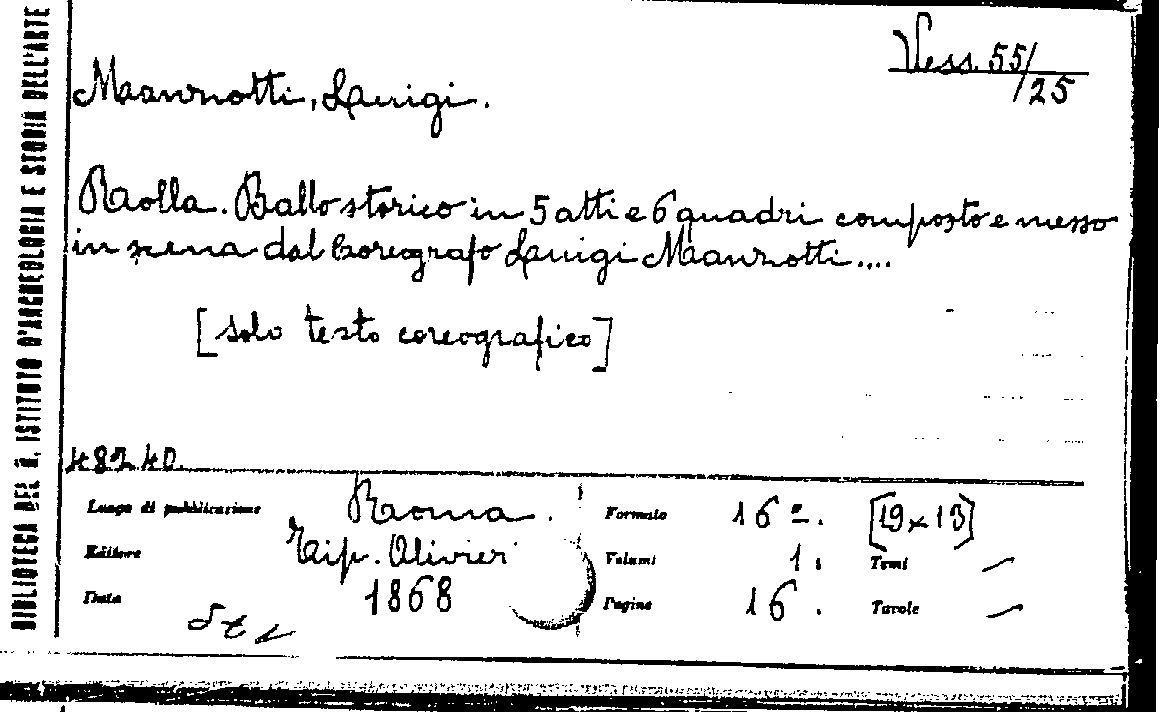 BIBLIOTECA DEL R. ISTITUTO D'ARCHEOLOGIA E STORIA DELL'ARTE
Vess. 55/25
Manzotti, Luigi.
Rolla. Ballo storico in 5 atti e 6 quadri composto e messo
in scena dal Coreografo Luigi Manzotti....
[solo testo coreografico]
48240.
Luogo di pubblicazione Roma. Formato 16º. [19x13]
Editore Tip. Olivieri Volumi 1. Tomi —
Data 1868 Pagine 16. Tavole —